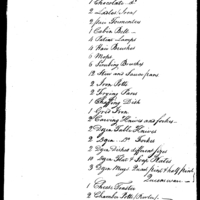 1 Chocolate do
2 Ladles Iron
2 Jan Tormentors
1 Cabin Bell
4 Patent Lamps
4 Hair Brushes
6 Mops
6 Scrubing Brushes
12 Stew and Saucepans
2 Iron Pots
2 Frying Pans
1 Chaffing Dish
1 Grid Iron
2 Carving Knives and forks
2 Dozn Table Knives
2 Dozn Do Forks
2 Dozn Dishes different sizes
10 Dozn Flat & Soup Plates
3 Dozn Mugs Quart pint & half pint
1 Cheese Toaster
2 Chamber Potts